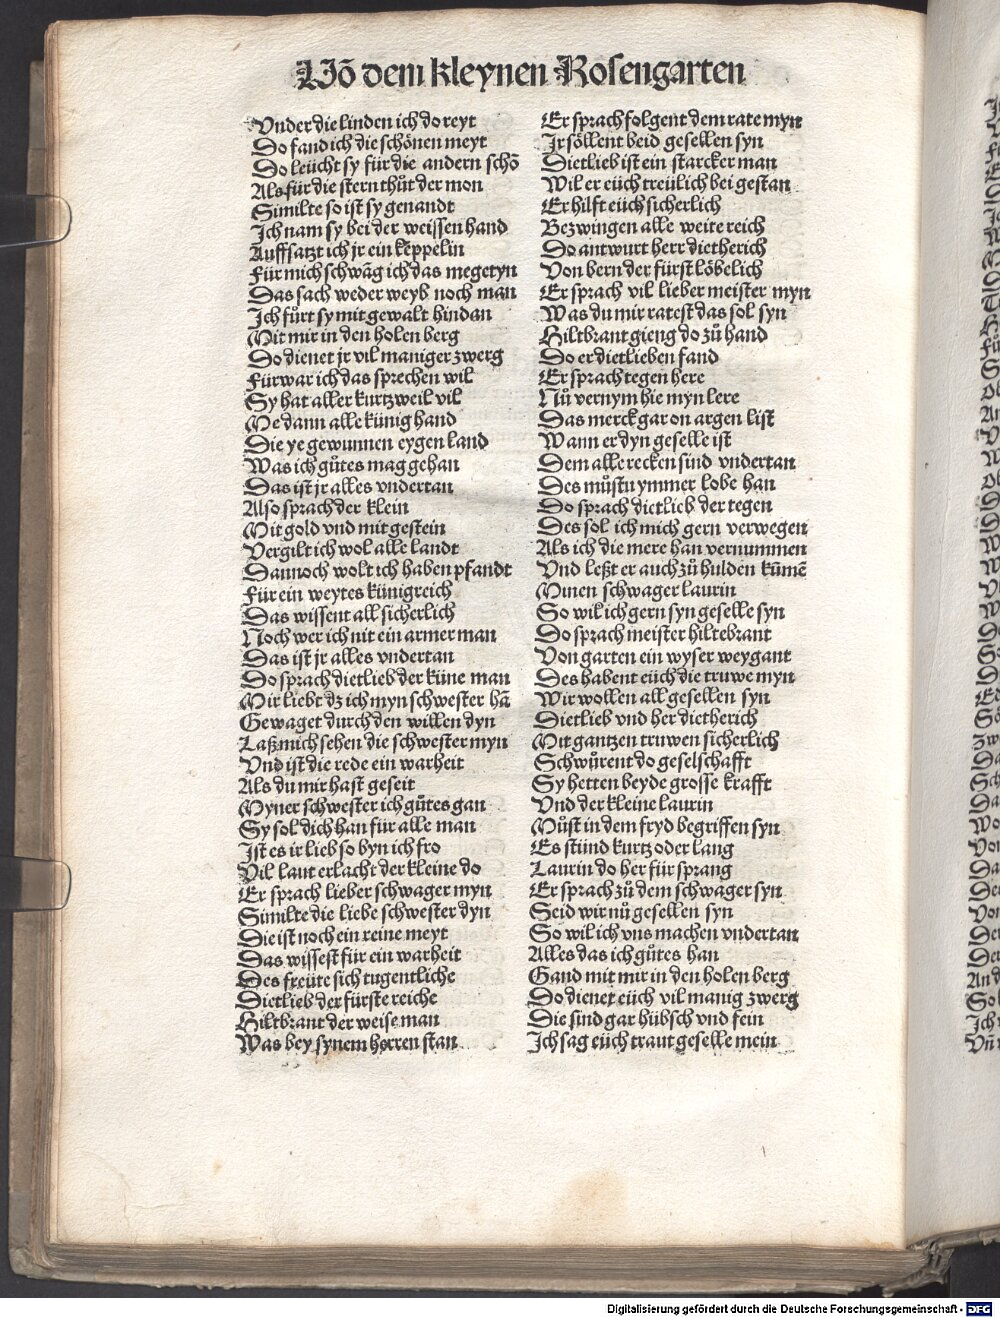 Võ dem kleynen Rosengarten
Vnder die linden ich do reyt
Do fand ich die schönen meyt
Do leücht sy für die andern schõ
Als für die stern thůt der mon
Similte so ist sy genandt
Ich nam sy bei der weissen hand
Auffsatzt ich jr ein keppelin
Für mich schwãg ich das megetyn
Das sach weder weyb noch man
Ich fůrt sy mit gewalt hindan
Mit mir in den holen berg
Do dienet jr vil maniger zwerg
Fürwar ich das sprechen wil
Sy hat aller kurtzweil vil
Me dann alle künig hand
Die ye gewunnen eygen land
Was ich gůtes mag gehan
Das ist jr alles vndertan
Also sprach der klein
Mit gold vnd mit gestein
Vergilt ich wol alle landt
Dannoch wolt ich haben pfandt
Für ein weytes künigreich
Das wissent all sicherlich
Noch wer ich nit ein armer man
Das ist jr alles vndertan
Do sprach dietlieb der küne man
Mir liebt dz ich myn schwester hã
Gewaget durch den willen dyn
Laß mich sehen die schwester myn
Vnd ist die rede ein warheit
Als du mir hast geseit
Myner schwester ich gůtes gan
Sy sol dich han für alle man
Ist es ir lieb so byn ich fro
Vil laut erlacht der kleine do
Er sprach lieber schwager myn
Similte die liebe schwester dyn
Die ist noch ein reine meyt
Das wissest für ein warheit
Des freüte sich tugentliche
Dietlieb der fürste reiche
Hiltbrant der weise man
Was bey synem herren stan
Er sprach folgent dem rate myn
Ir söllent beid gesellen syn
Dietlieb ist ein starcker man
Wil er eüch treülich bei gestan
Er hilft eüch sicherlich
Bezwingen alle weite reich
Do antwurt herr dietherich
Von bern der fürst löbelich
Er sprach vil lieber meister myn
Was du mir ratest das sol syn
Hiltbrant gieng do zů hand
Do er dietlieben fand
Er sprach tegen here
Nů vernym hie myn lere
Das merck gar on argen list
Wann er dyn geselle ist
Dem alle recken sind vndertan
Des můstu ymmer lobe han
Do sprach dietlieb der tegen
Des sol ich mich gern verwegen
Als ich die mere han vernummen
Vnd leßt er auch zů hulden kũmẽ
Minen schwager laurin
So wil ich gern syn geselle syn
Do sprach meister hiltebrant
Von garten ein wyser weygant
Des habent eüch die truwe myn
Wir wollen all gesellen syn
Dietlieb vnd her dietherich
Mit gantzen truwen sicherlich
Schwůrent do geselschafft
Sy hetten beyde grosse krafft
Vnd der kleine laurin
Můst in dem fryd begriffen syn
Es stůnd kurtz oder lang
Laurin do her für sprang
Er sprach zů dem schwager syn
Seid wir nů gesellen syn
So wil ich vns machen vndertan
Alles das ich gůtes han
Gand mit mir in den holen berg
Do dienet eüch vil manig zwerg
Die sind gar hübsch vnd fein
Ich sag eüch traut geselle mein
Digitalisierung gefördert durch die Deutsche Forschungsgemeinschaft - DFG